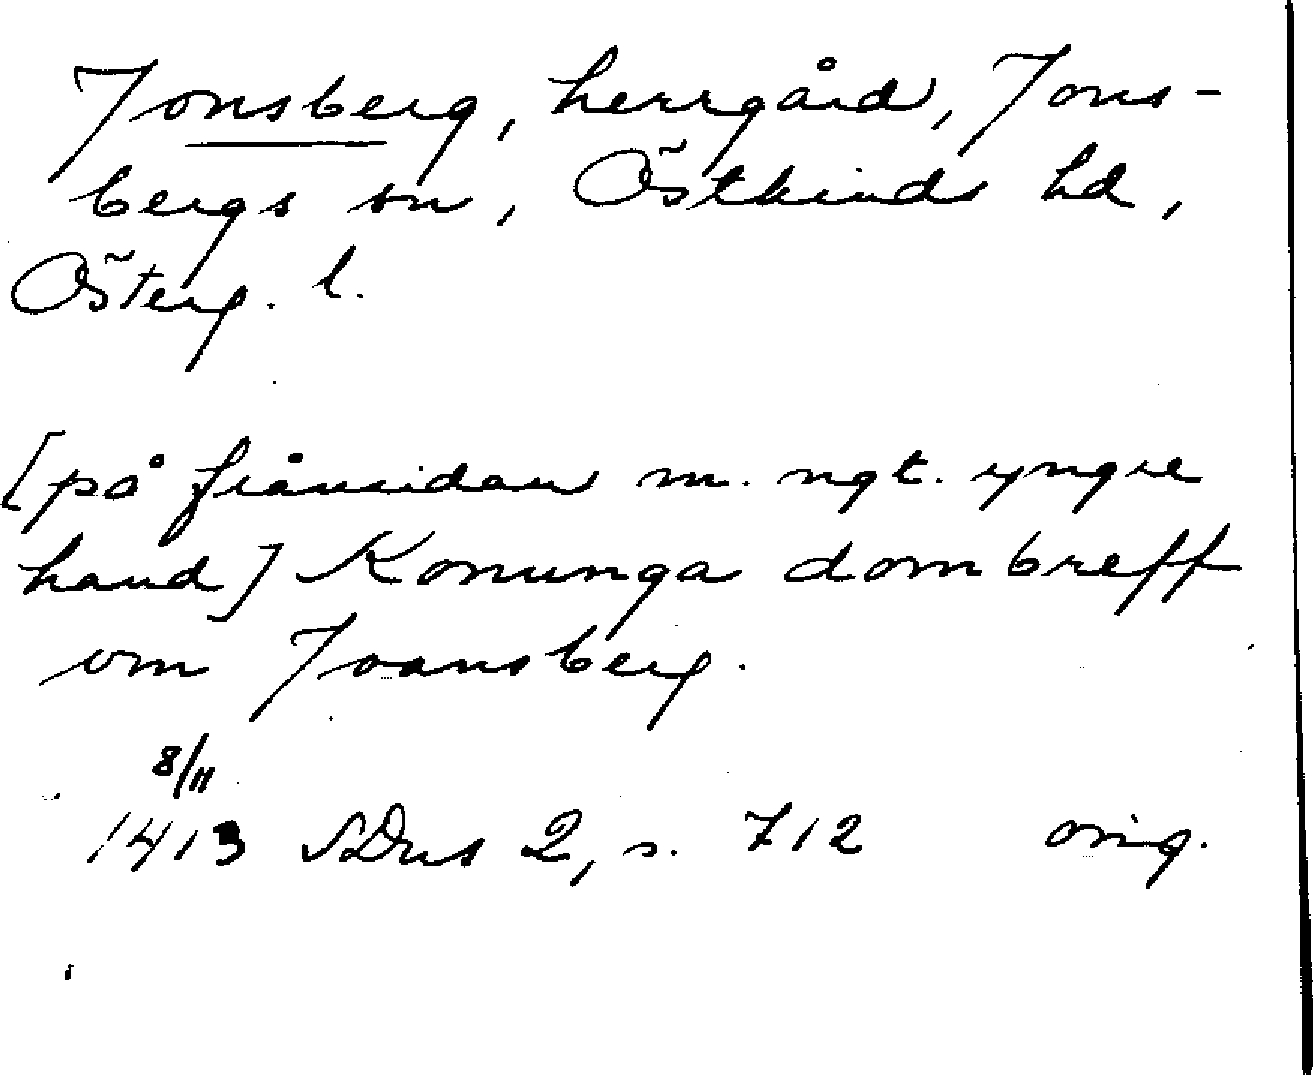 Jonsberg, herrgård, Jons-
bergs sn, Östkinds hd,
Österg. l.
[på frånsidan m. ngt. yngre
hand] Konunga dombreff
om Joansberg.
8/11
1413 SDns 2, s. 712 orig.